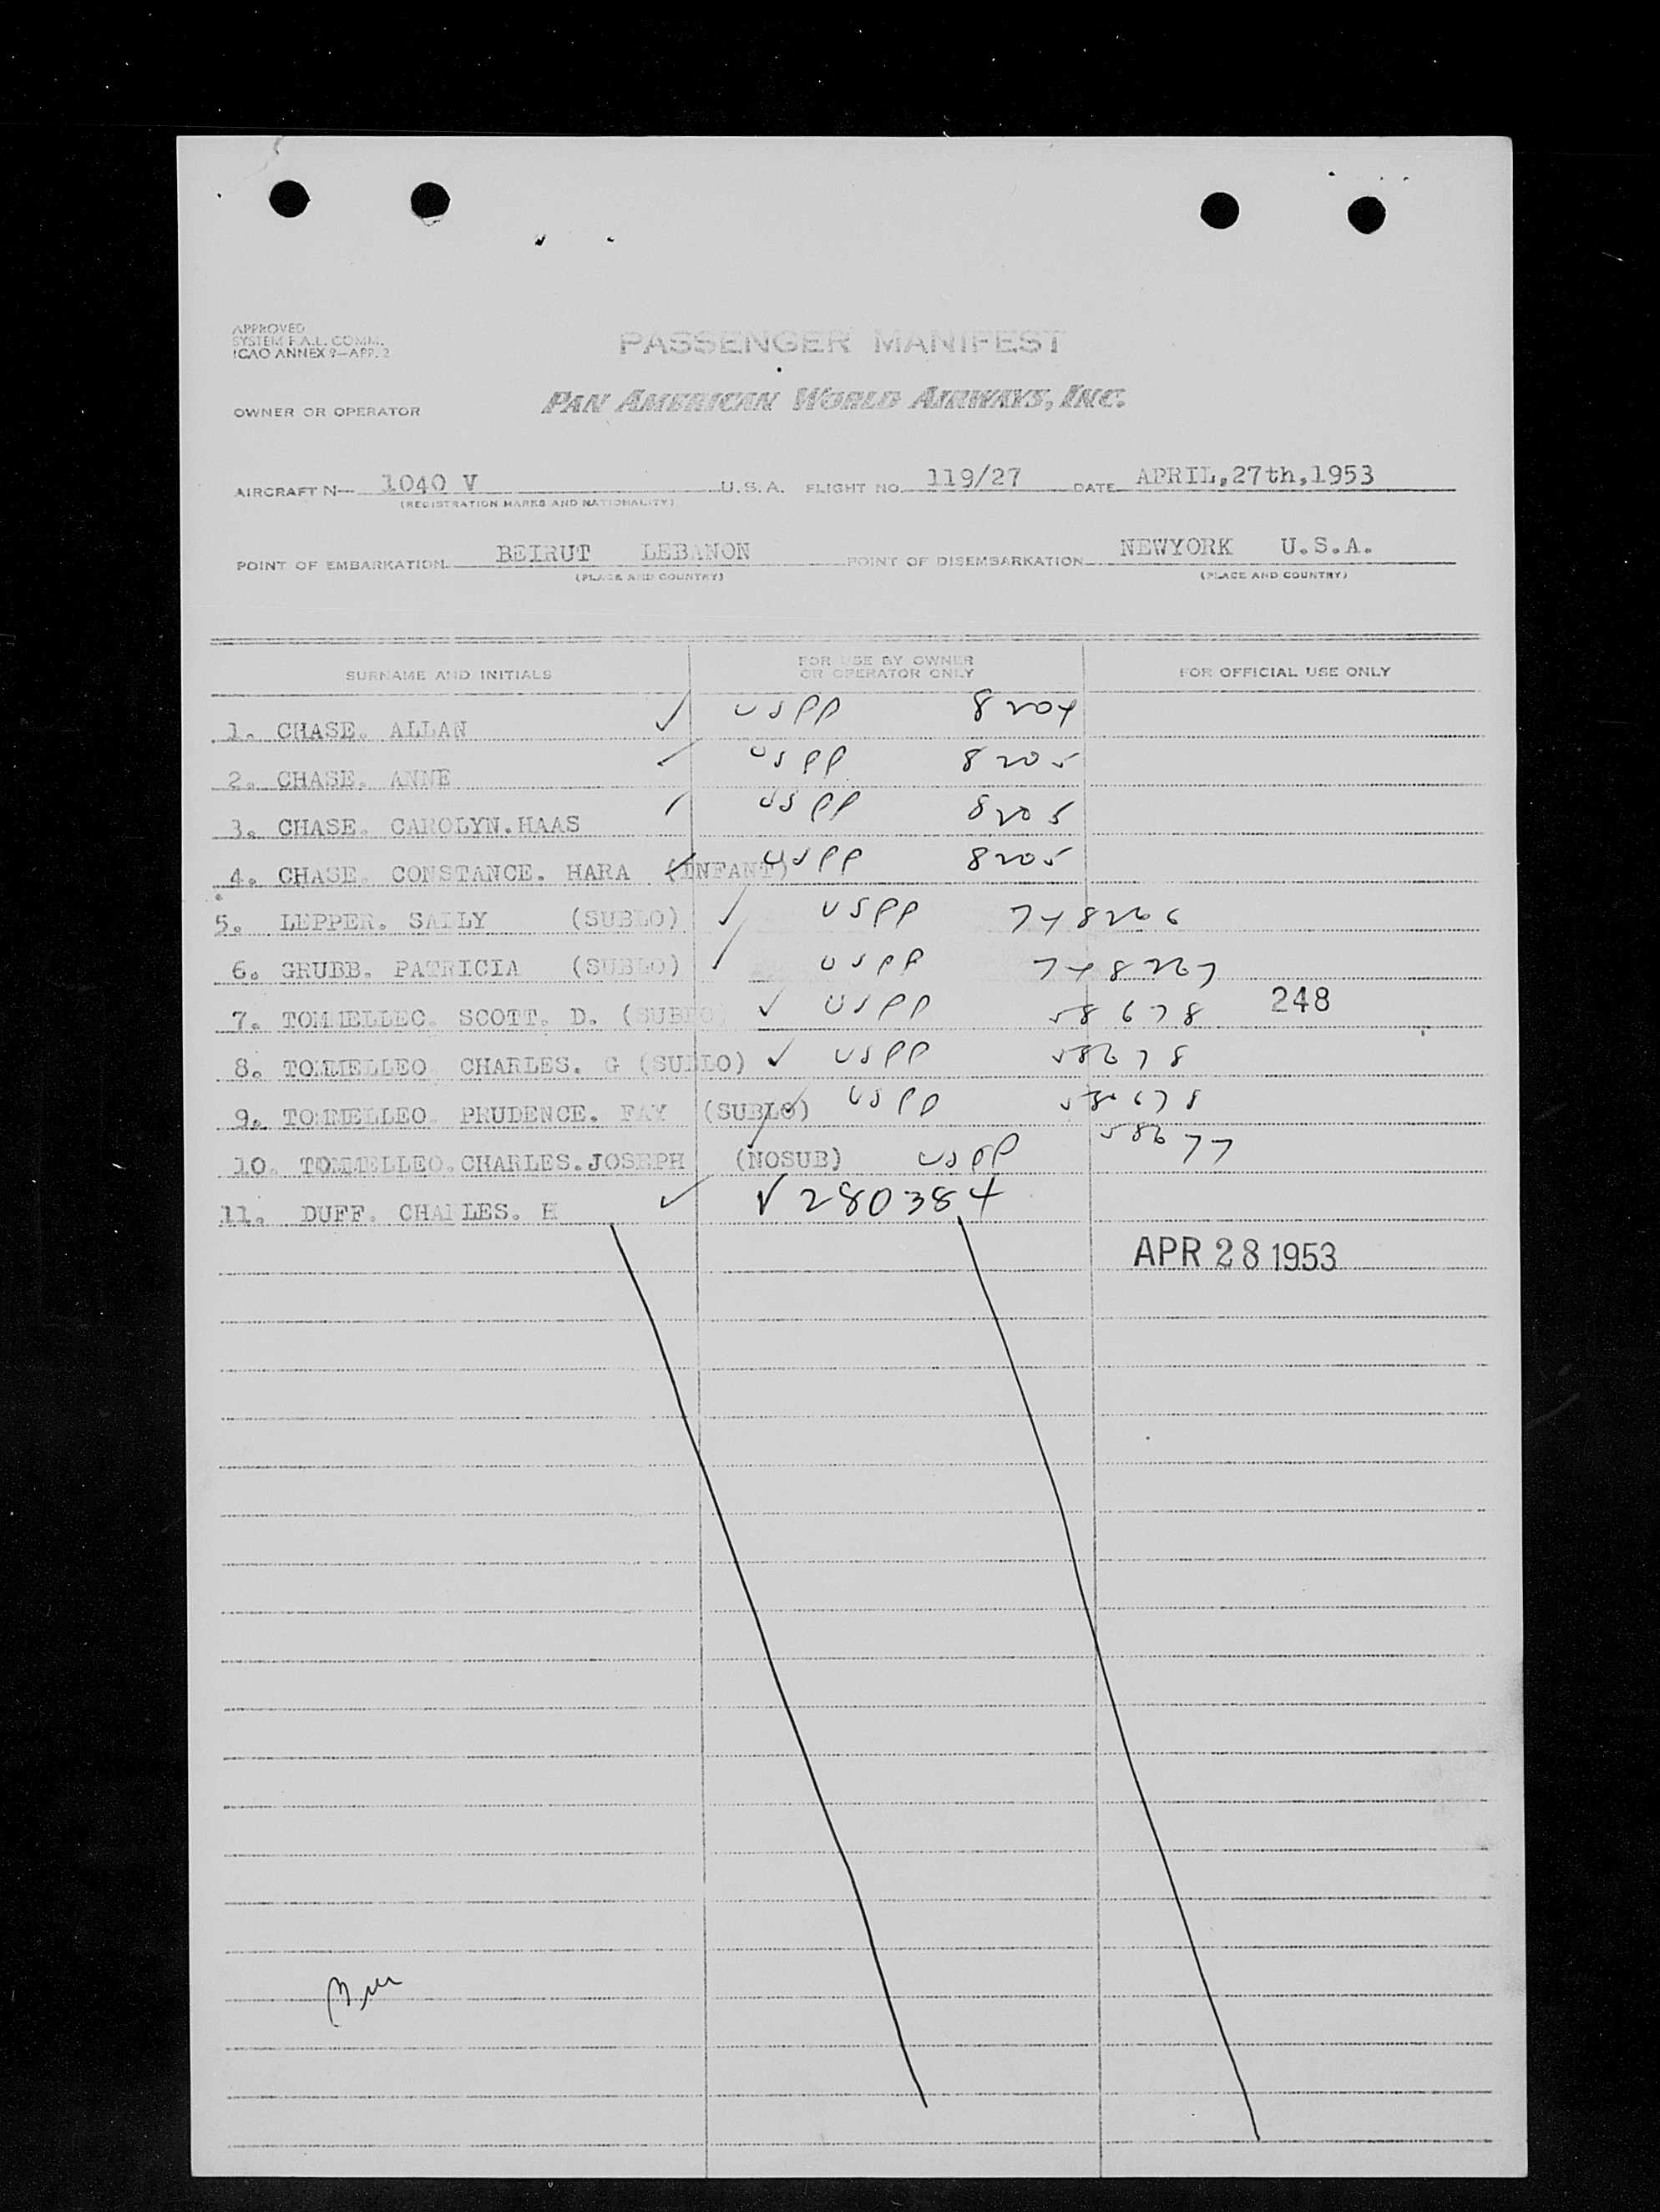 APPROVED
SYSTEM F.A.L. COMM.
ICAO ANNEX 9—APP. 2
PASSENGER MANIFEST
OWNER OR OPERATOR PAN AMERICAN WORLD AIRWAYS, INC.
AIRCRAFT N— 1040 V U.S.A. FLIGHT NO. 119/27 DATE APRIL,27th,1953
(REGISTRATION MARKS AND NATIONALITY)
POINT OF EMBARKATION BEIRUT LEBANON POINT OF DISEMBARKATION NEWYORK U.S.A.
(PLACE AND COUNTRY) (PLACE AND COUNTRY)
SURNAME AND INITIALS FOR USE BY OWNER OR OPERATOR ONLY FOR OFFICIAL USE ONLY
1. CHASE. ALLAN ✓ USPP 8204
2. CHASE. ANNE ✓ USPP 8205
3. CHASE. CAROLYN.HAAS ✓ USPP 8205
4. CHASE. CONSTANCE. HARA (INFANT) ✓ USPP 8205
5. LEPPER. SALLY (SUBLO) ✓ USPP 748266
6. GRUBB. PATRICIA (SUBLO) ✓ USPP 748267
7. TOMMELLEO. SCOTT. D. (SUBLO) ✓ USPP 58678 248
8. TOMMELLEO CHARLES. G (SUBLO) ✓ USPP 58678
9. TOMMELLEO. PRUDENCE. FAY (SUBLO) ✓ USPP 58678
10. TOMMELLEO.CHARLES.JOSEPH (NOSUB) ✓ USPP 58677
11. DUFF. CHARLES. H ✓ V280384
APR 28 1953